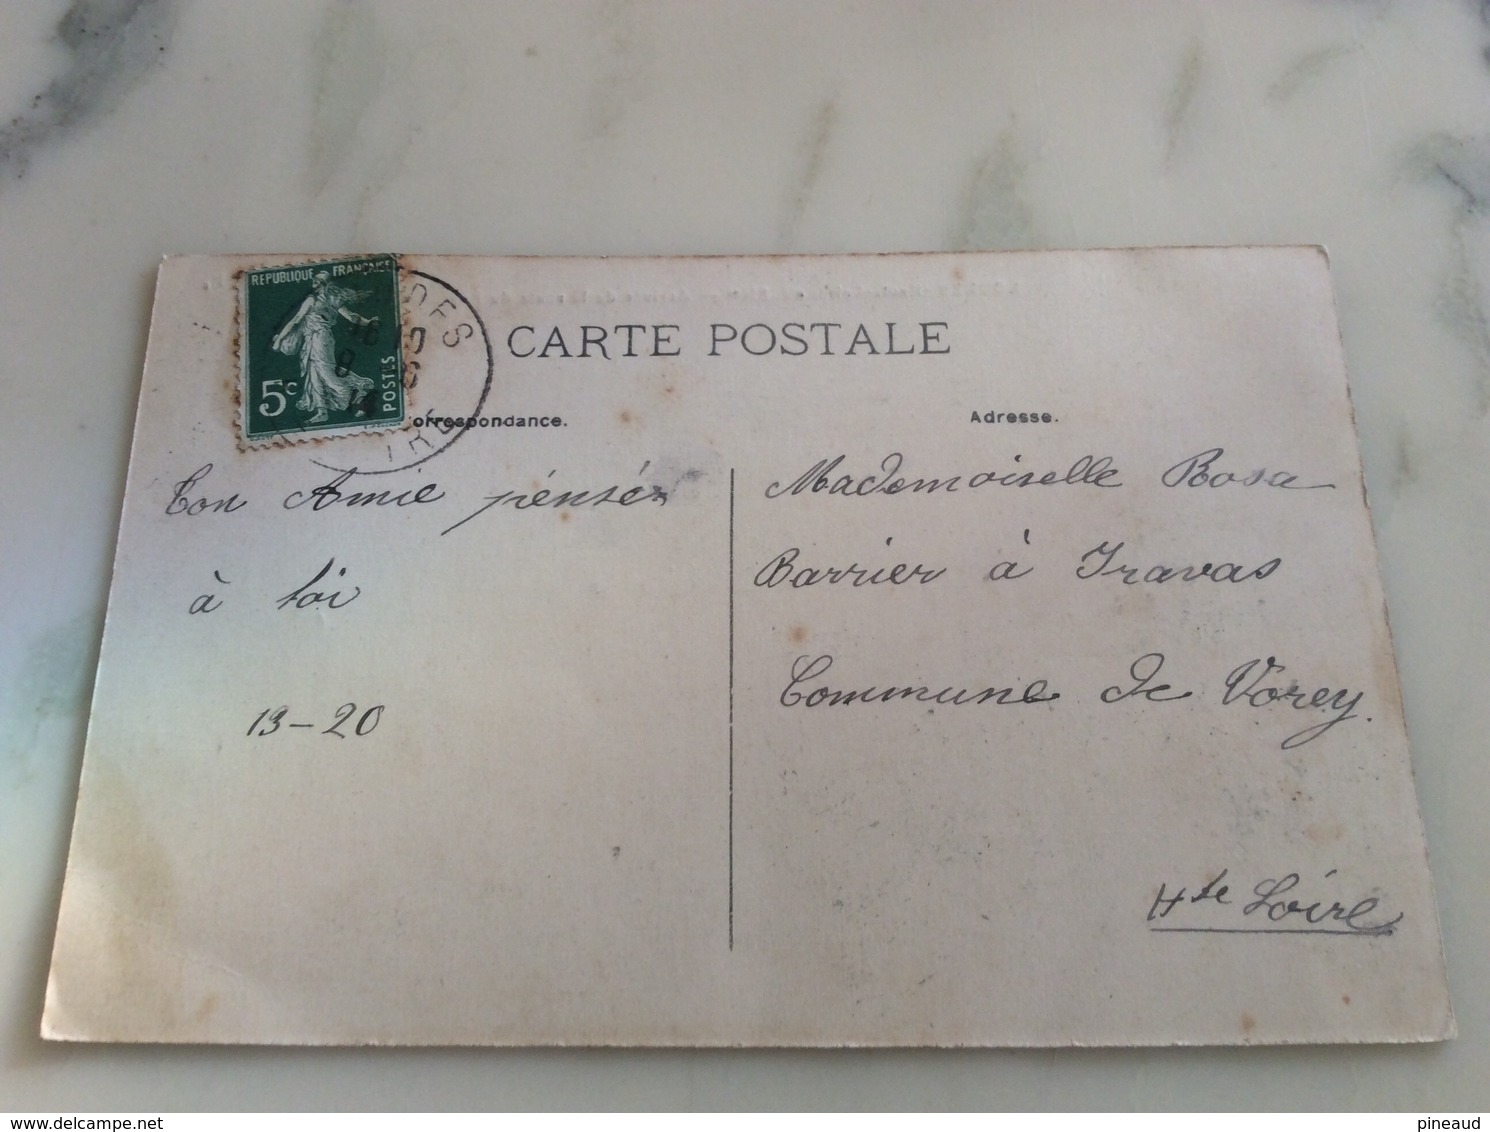 RÉPUBLIQUE FRANÇAISE
5c
POSTES
CARTE POSTALE
orrespondance.
Adresse.
Ton Amie pénsés
à toi
13-20
Mademoiselle Rosa
Barrier à Travas
Commune de Vorey.
Hte Loire
www.delcampe.net
pineaud